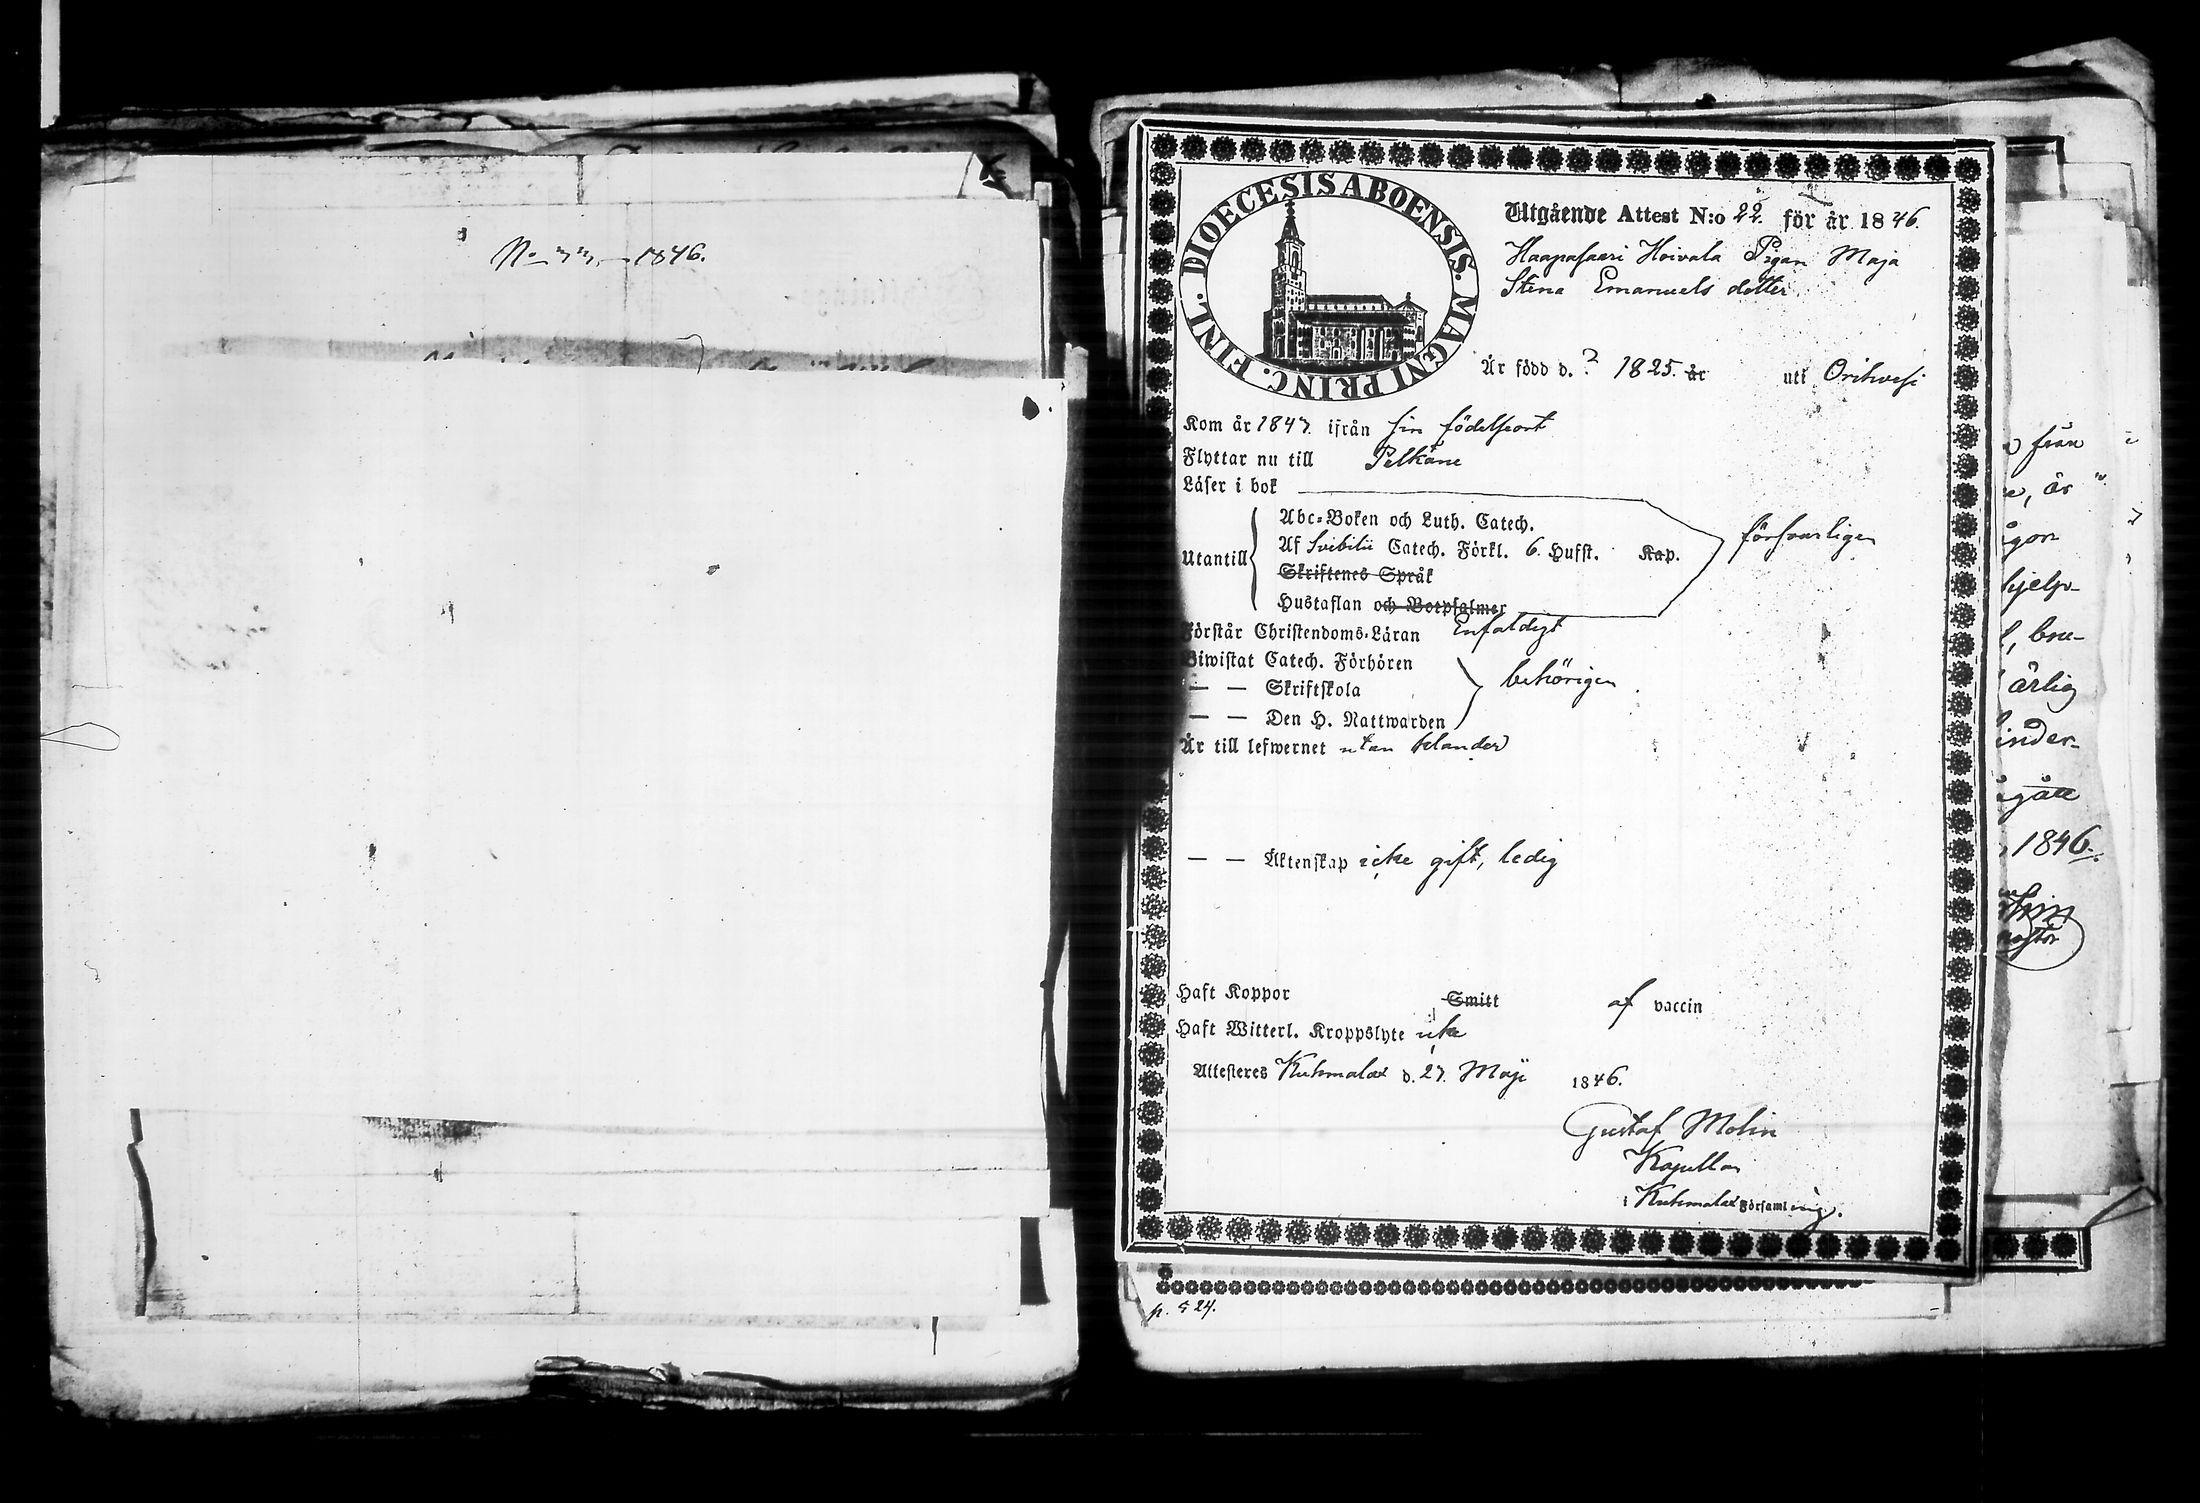 No 33. 1846.
DIOECESIS ABOENSIS. MAGNI PRINC. FINL.
Utgående Attest N:o 22. för år 1846.
Haapasaari Hoivala Pigan Maja
Stena Emanuels dotter
Är född d. ? 1825. år utk Orihvesi
Kom år 1843. ifrån sin födelseort
Flyttar nu till Pelkäne
Läser i bok
Abc-Boken och Luth. Catech.
Utantill Af Svibilii Catech. Förkl. 6. Hufst. Kap. försvarligen
Skriftenes Språk
Hustaflan och Botpsalmer
Förstår Christendoms-Läran Enfaldigt
Biwistat Catech. Förhören
— — Skriftskola behörigen
— — Den H. Nattwarden
Är till lefwernet utan klander
— — Äktenskap icke gift, ledig
Haft Koppor Smitt af vaccin
Haft Witterl. Kroppslyte icke
Attesteres Kuhmalax d. 27. Maji 1846.
Gustaf Molin
Kapellan
i Kuhmalax Församling.
p. 524.
från
är
hjelp-
bru-
ärlig
1846.